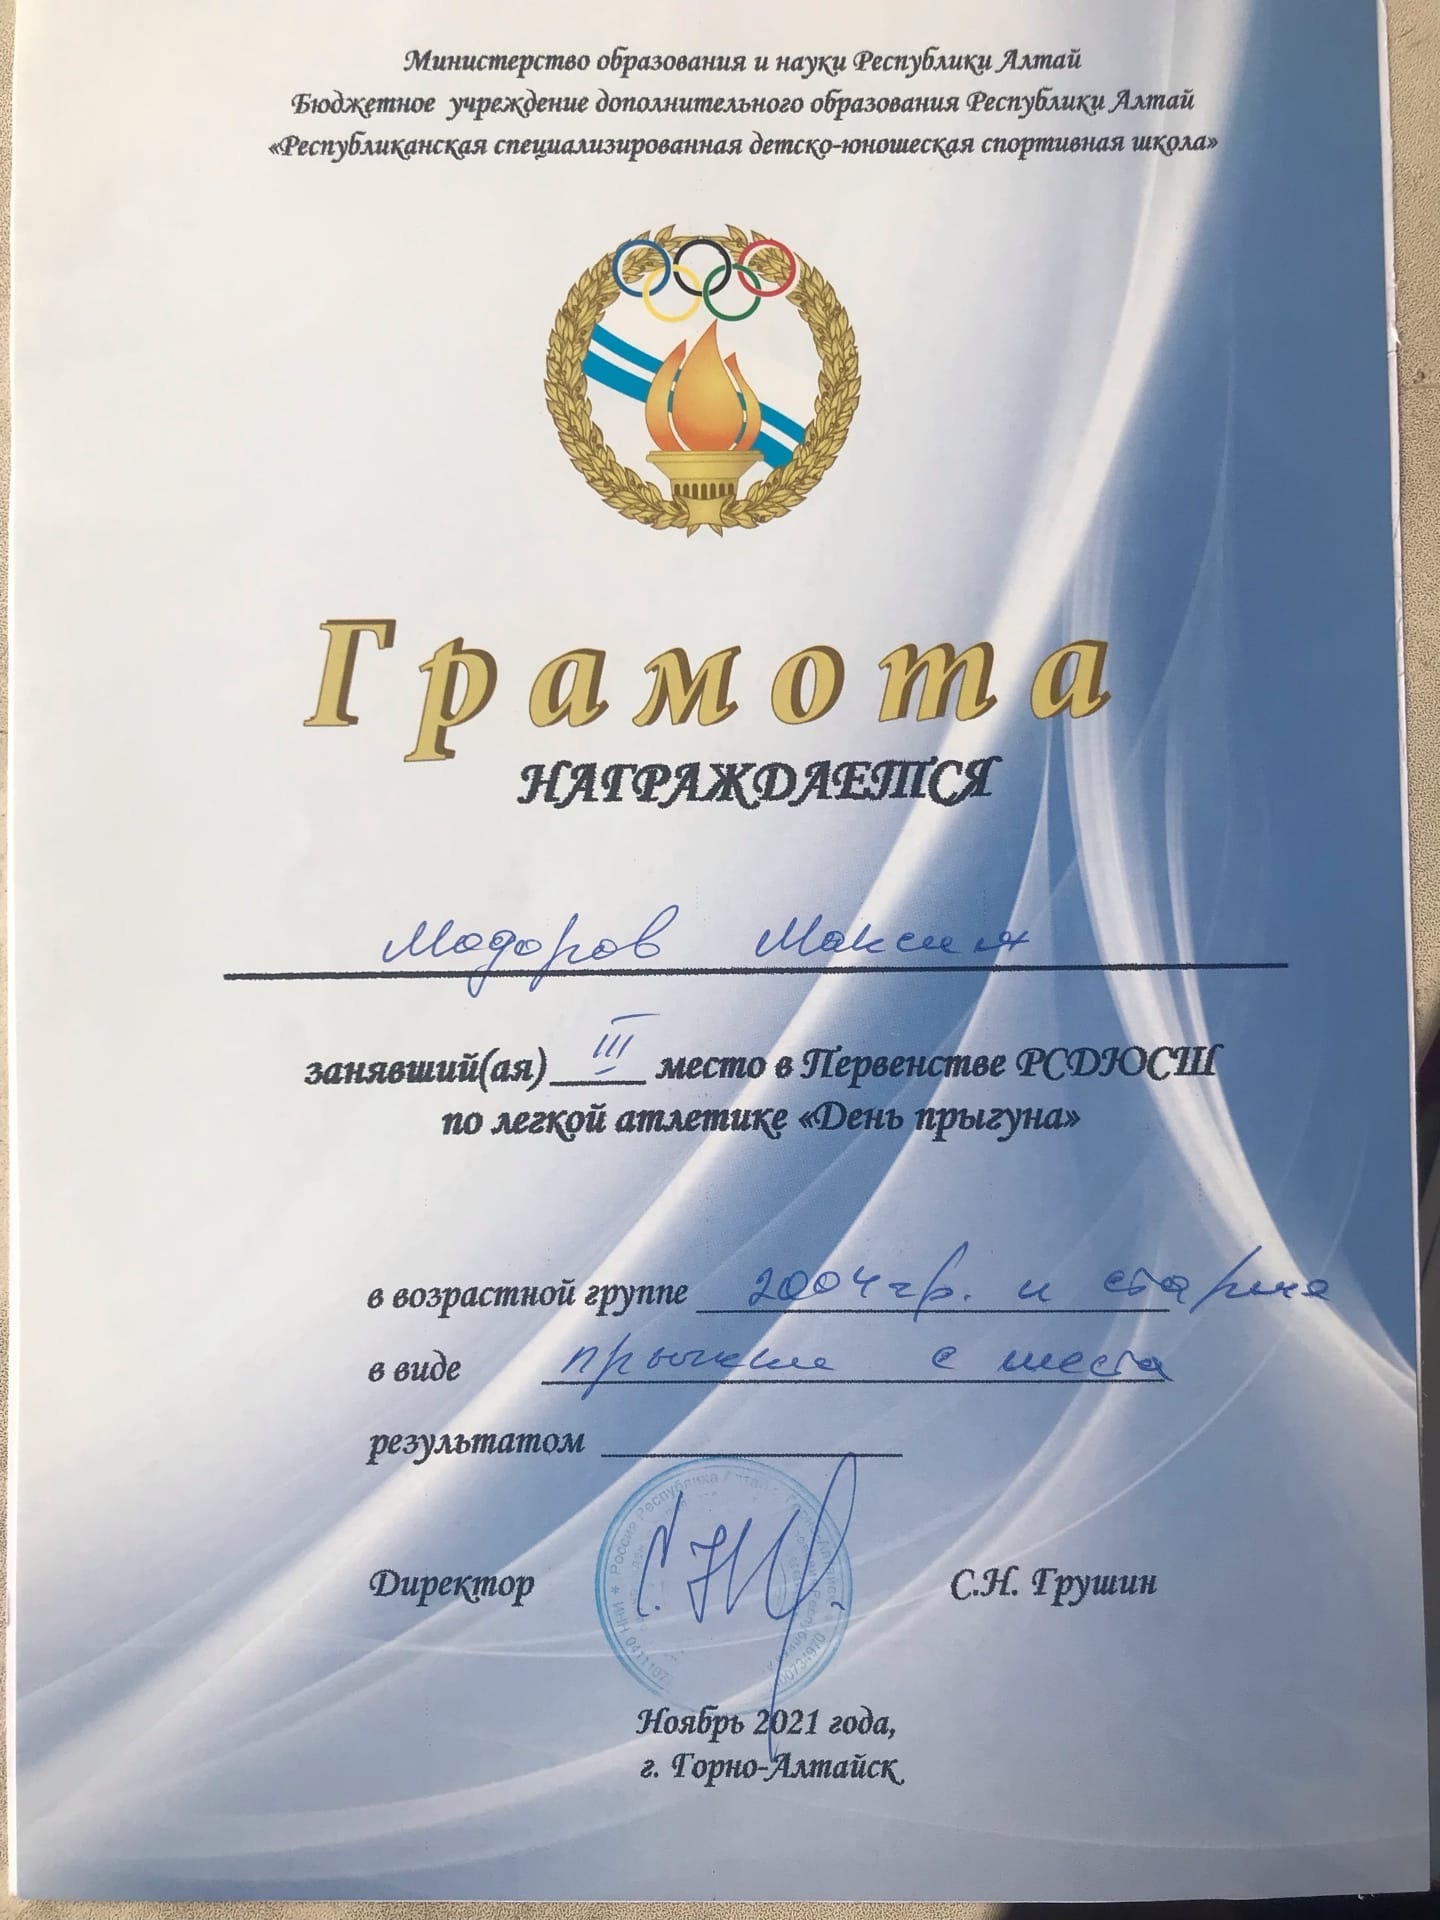 Министерство образования и науки Республики Алтай
Бюджетное учреждение дополнительного образования Республики Алтай
«Республиканская специализированная детско-юношеская спортивная школа»
Грамота
НАГРАЖДАЕТСЯ
Модоров Максим
занявший(ая) III место в Первенстве РСДЮСШ
по легкой атлетике «День прыгуна»
в возрастной группе 2004 г.р. и старше
в виде прыжки с места
результатом
Директор
С.Н. Грушин
Россия Республика Алтай
Ноябрь 2021 года,
г. Горно-Алтайск